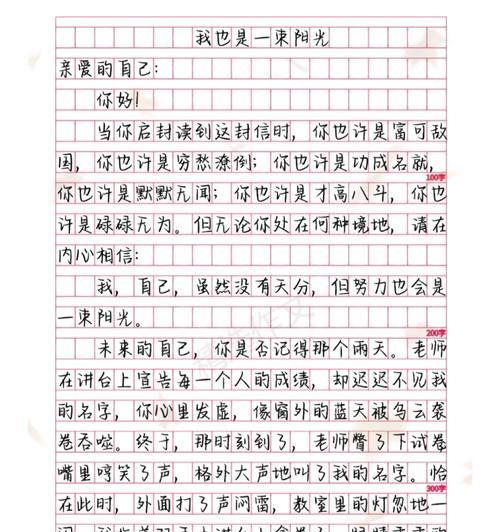 我也是一束阳光
亲爱的自己：
你好！
当你启封读到这封信时，你也许是富可敌
国，你也许是穷愁潦倒；你也许是功成名就，
100字
你也许是默默无闻；你也许是才高八斗，你也
许是碌碌无为。但无论你处在何种境地，请在
内心相信：
我，自己，虽然没有天分，但努力也会是
一束阳光。
200字
未来的自己，你是否记得那个雨天。老师
在讲台上宣告每一个人的成绩，却迟迟不见我
的名字，你心里发虚，像窗外的蓝天被乌云袭
卷吞噬。终于，那时刻到了，老师瞥了下试卷
嘴里哼笑了声，格外大声地叫了我的名字。恰
300字
在此时，外面打了声闷雷，教室里的灯忽地一